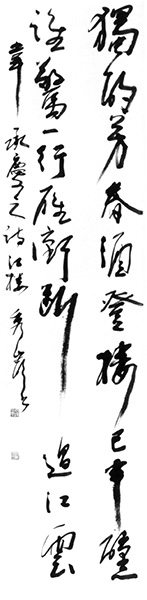 獨酌芳春酒登樓已半醺
誰驚一行雁衝斷過江雲
韋承慶之詩江樓 秀